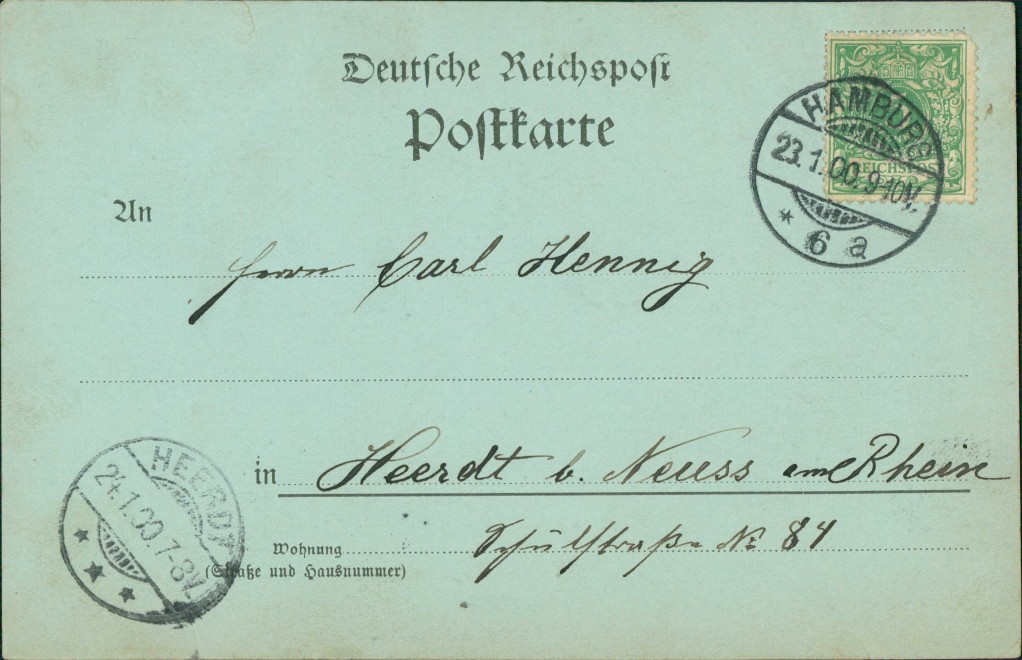 Deutsche Reichspost
Postkarte
HAMBURG
23.1.00.9-10V.
* 6 a
REICHSPOST
An
Herrn Carl Hennig
in Heerdt b. Neuss am Rhein
Wohnung Schulstraße No 84
(Straße und Hausnummer)
HEERDT
24.1.00.7-8V.